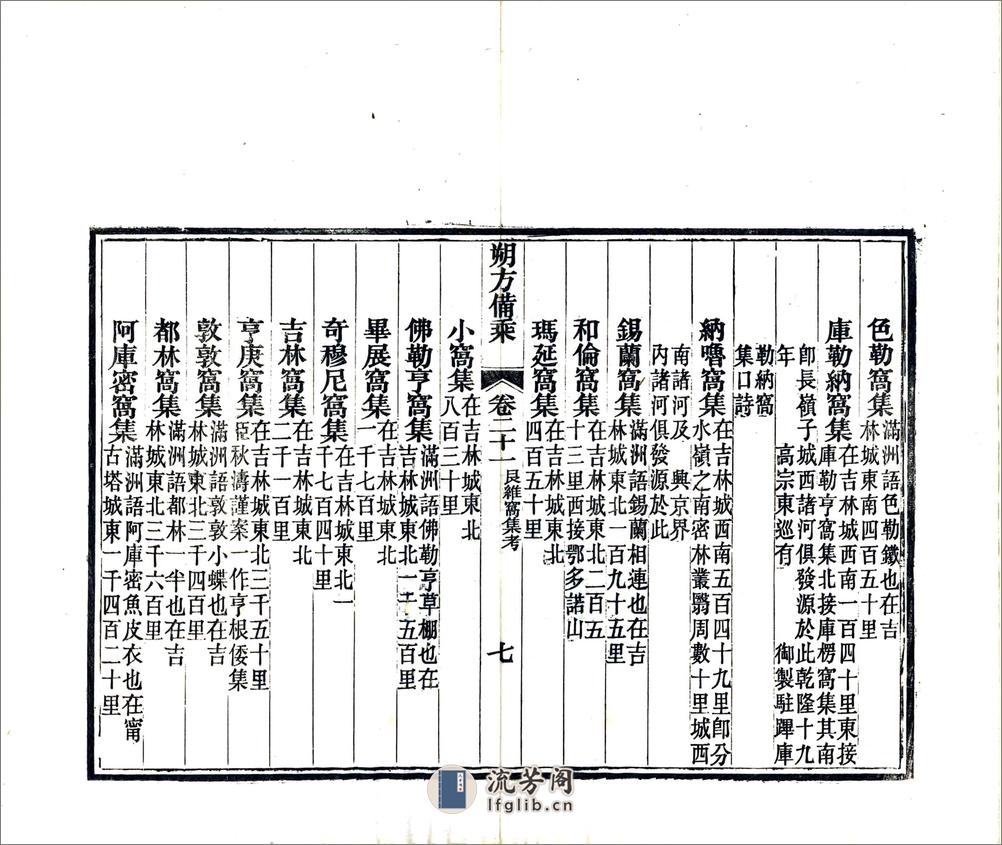 色勒窩集滿洲語色勒鐵也在吉
林城東南四百五十里
庫勒納窩集在吉林城西南一百四十里東接
庫勒亨窩集北接庫楞窩集其南
卽長嶺子城西諸河俱發源於此乾隆十九
年　高宗東巡有　御製駐蹕庫
勒納窩
集口詩
納嚕窩集在吉林城西南五百四十九里卽分
水嶺之南密林叢翳周數十里城西
南諸河及　興京界
內諸河俱發源於此
錫蘭窩集滿洲語錫蘭相連也在吉
林城東北一百九十五里
和倫窩集在吉林城東北二百五
十三里西接鄂多諾山
瑪延窩集在吉林城東北
四百五十里
朔方備乘　卷二十一　艮維窩集考　七
小窩集在吉林城東北
八百三十里
佛勒亨窩集滿洲語佛勒亨草棚也在
吉林城東北一千五百里
畢展窩集在吉林城東北
一千七百里
奇穆尼窩集在吉林城東北一
千七百四十里
吉林窩集在吉林城東北
二千一百里
亨庚窩集在吉林城東北三千五十里
臣秋濤謹案一作亨根倭集
敦敦窩集滿洲語敦敦小蝶也在吉
林城東北三千四百里
都林窩集滿洲語都林一半也在吉
林城東北三千六百里
阿庫密窩集滿洲語阿庫密魚皮衣也在甯
古塔城東一千四百二十里
流芳阁
lfglib.cn